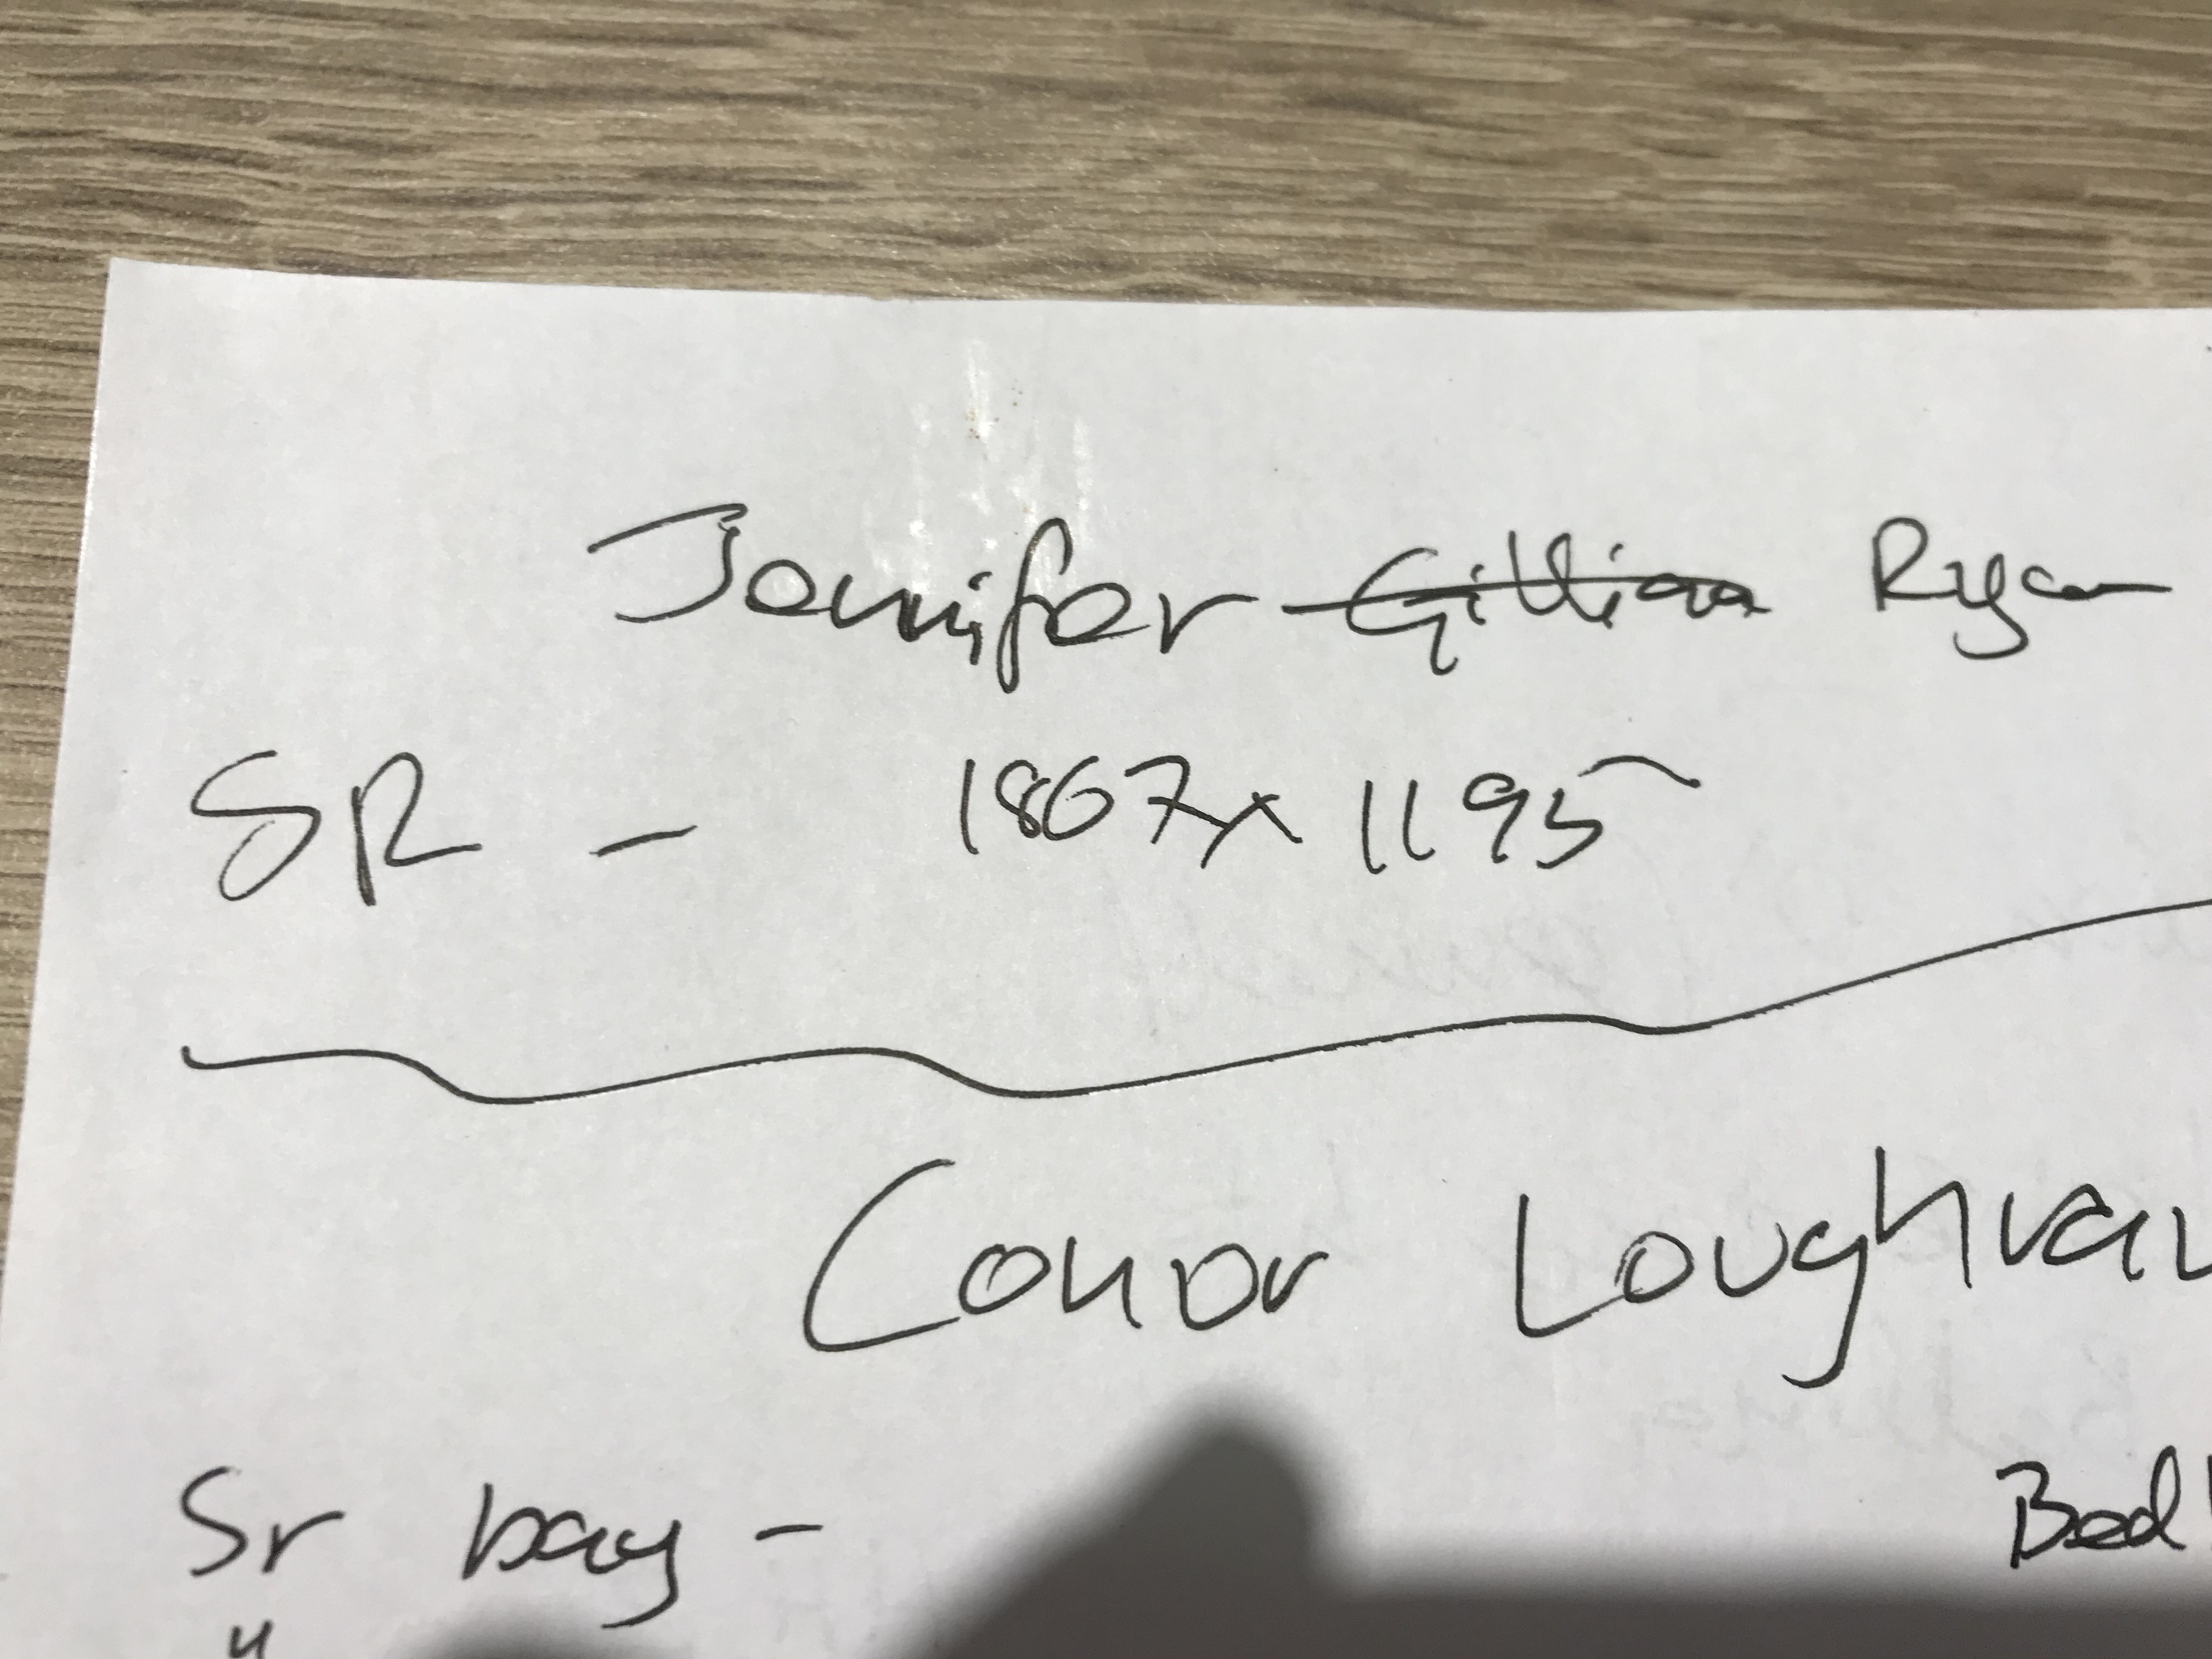 Jennifer Gillian Ryan
SR - 1867 x 1195
Conor Loughran
Sr bay - Bed
"